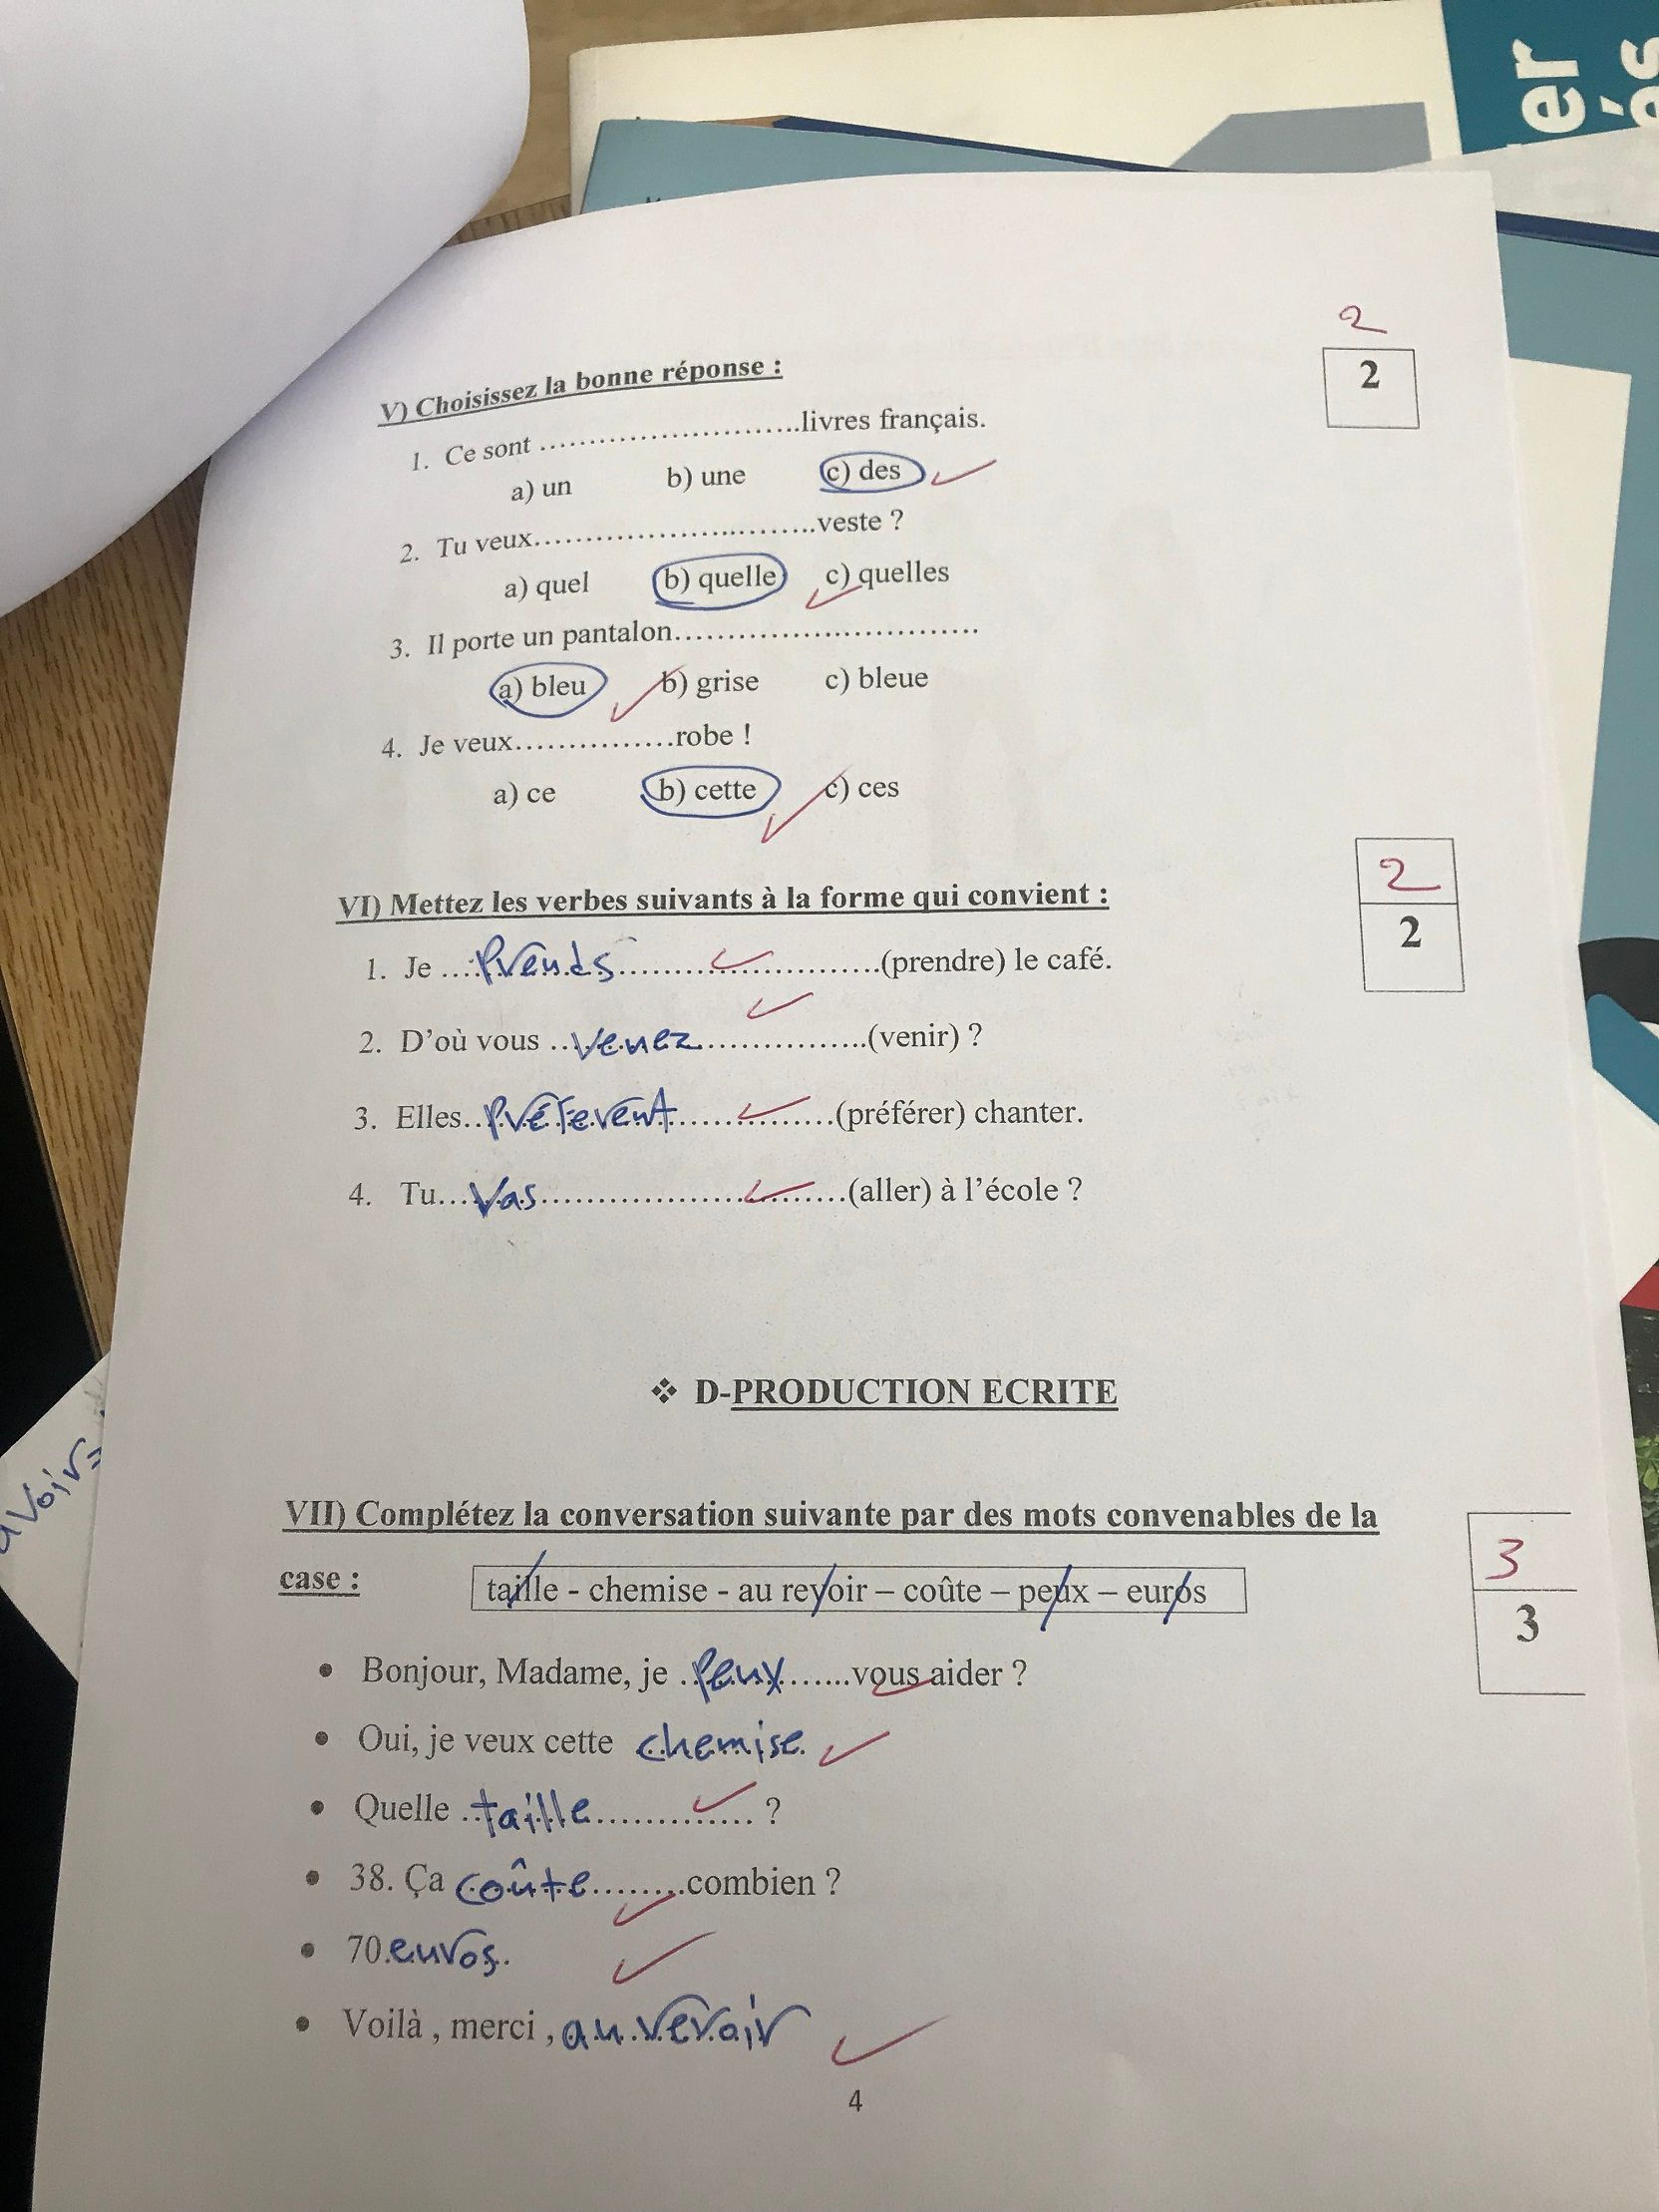 er
és
2
2
V) Choisissez la bonne réponse :
1. Ce sont ..............................livres français.
a) un b) une c) des
2. Tu veux..............................veste ?
a) quel b) quelle c) quelles
3. Il porte un pantalon..............................
a) bleu b) grise c) bleue
4. Je veux................robe !
a) ce b) cette c) ces
2
2
VI) Mettez les verbes suivants à la forme qui convient :
1. Je ...Prends..........................(prendre) le café.
2. D'où vous ...venez.................(venir) ?
3. Elles..préfèrent................(préférer) chanter.
4. Tu...Vas..............................(aller) à l'école ?
❖ D-PRODUCTION ECRITE
VII) Complétez la conversation suivante par des mots convenables de la
case : taille - chemise - au revoir – coûte – peux – euros
3
3
• Bonjour, Madame, je ..Peux.......vous aider ?
• Oui, je veux cette chemise.
• Quelle ..taille............. ?
• 38. Ça coûte.........combien ?
• 70.euros..
• Voilà , merci , au revoir
4
avoir=